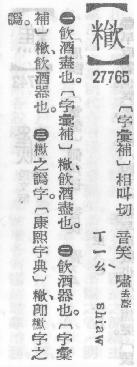 【】
27765
〔字彙補〕相叫切 音笑 嘯去聲
ㄒㄧㄠ shiaw
㊀飲酒盡也。〔字彙補〕、飲酒盡也。㊁飲酒器也。〔字彙
補〕、飲酒器也。㊂之譌字。〔康熙字典〕、卽字之
譌。